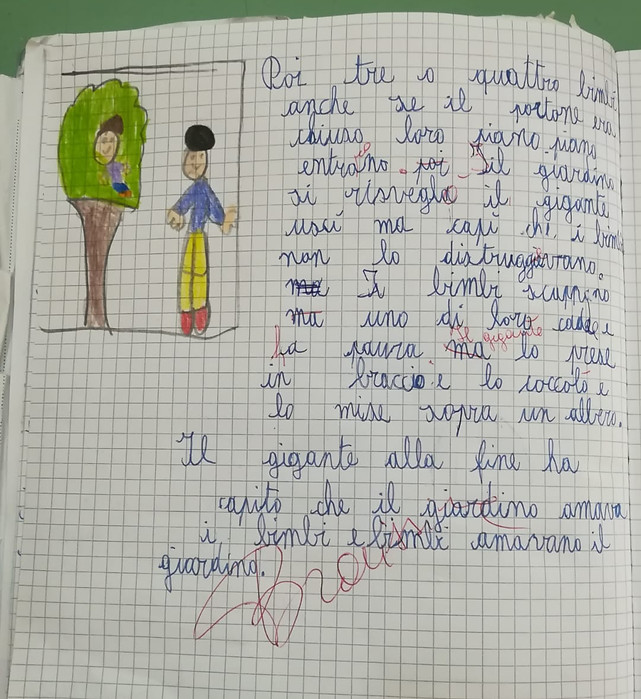 Poi tre o quattro bimbi
anche se il portone era
chiuso loro piano piano
entrano. poi Il giardino
si risvegliò il gigante
uscì ma capì chi i bimbi
non lo distruggevano.
ma I bimbi scappino
ma uno di loro cadde e
ha paura. ma Il gigante lo prese
in braccio e lo coccolò e
lo mise sopra un albero.
Il gigante alla fine ha
capito che il giardino amava
i bimbi e bimbi amavano il
giardino.